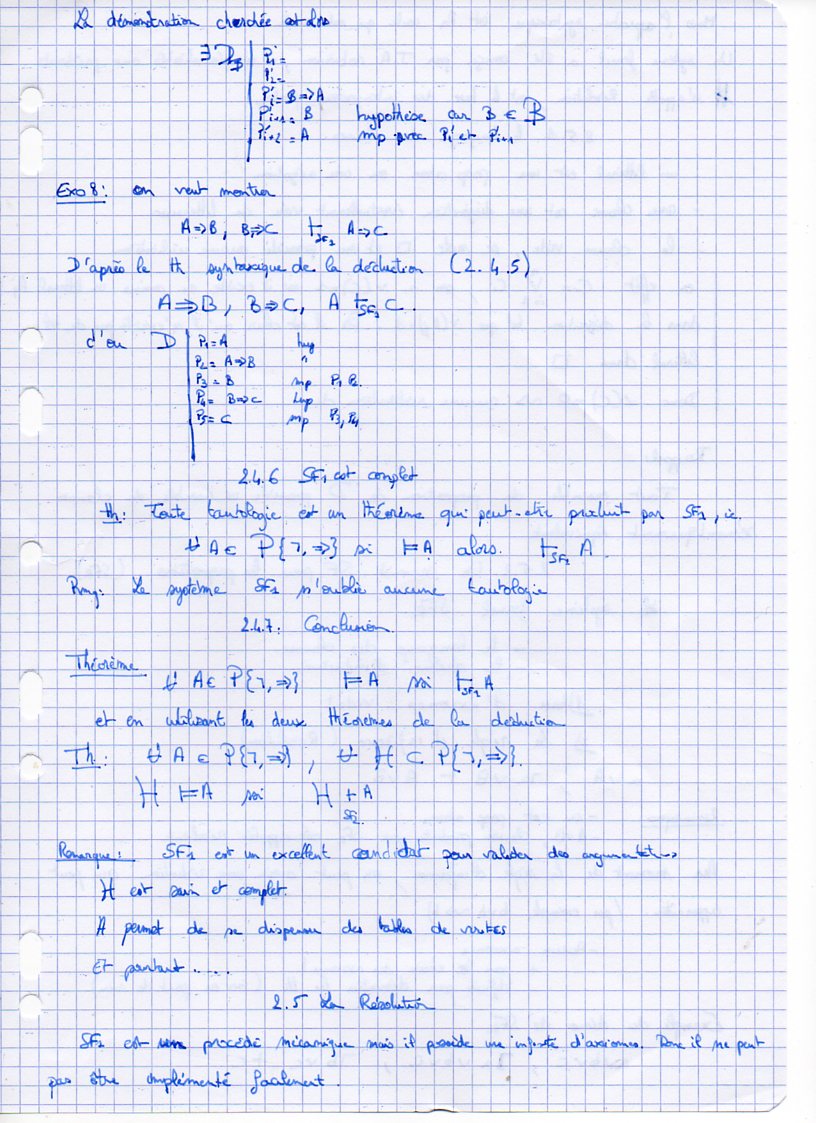 La démonstration cherchée est alors
∃ D𝔹 | P'1 =
P'2 =
P'i = B ⇒ A
P'i+1 = B hypothèse car B ∈ 𝔹
P'i+2 = A mp avec P'i et P'i+1
Exo 8: on veut montrer
A ⇒ B, B ⇒ C ⊢SF1 A ⇒ C
D'après le th syntaxique de la déduction (2.4.5)
A ⇒ B, B ⇒ C, A ⊢SF1 C.
d'où D | P1 = A hyp
P2 = A ⇒ B "
P3 = B mp P1 P2
P4 = B ⇒ C hyp
P5 = C mp P3, P4
2.4.6 SF1 est complet
th: Toute tautologie est un théorème qui peut-être produit par SF1, ie.
∀ A ∈ P{¬, ⇒} si ⊨ A alors. ⊢SF1 A.
Rmq: Le système SF1 n'oublie aucune tautologie
2.4.7. Conclusion.
Théorème
∀ A ∈ P{¬, ⇒} ⊨ A ssi ⊢SF1 A
et en utilisant les deux théorèmes de la déduction
Th: ∀ A ∈ P{¬, ⇒}, ∀ H ⊂ P{¬, ⇒}.
H ⊨ A ssi H ⊢SF1 A
Remarque: SF1 est un excellent candidat pour valider des argumentations
Il est sain et complet.
Il permet de se dispenser des tables de vérités
Et pourtant ....
2.5 La Résolution
SF1 est un procédé mécanique mais il possède une infinité d'axiomes. Donc il ne peut
pas être implémenté facilement.